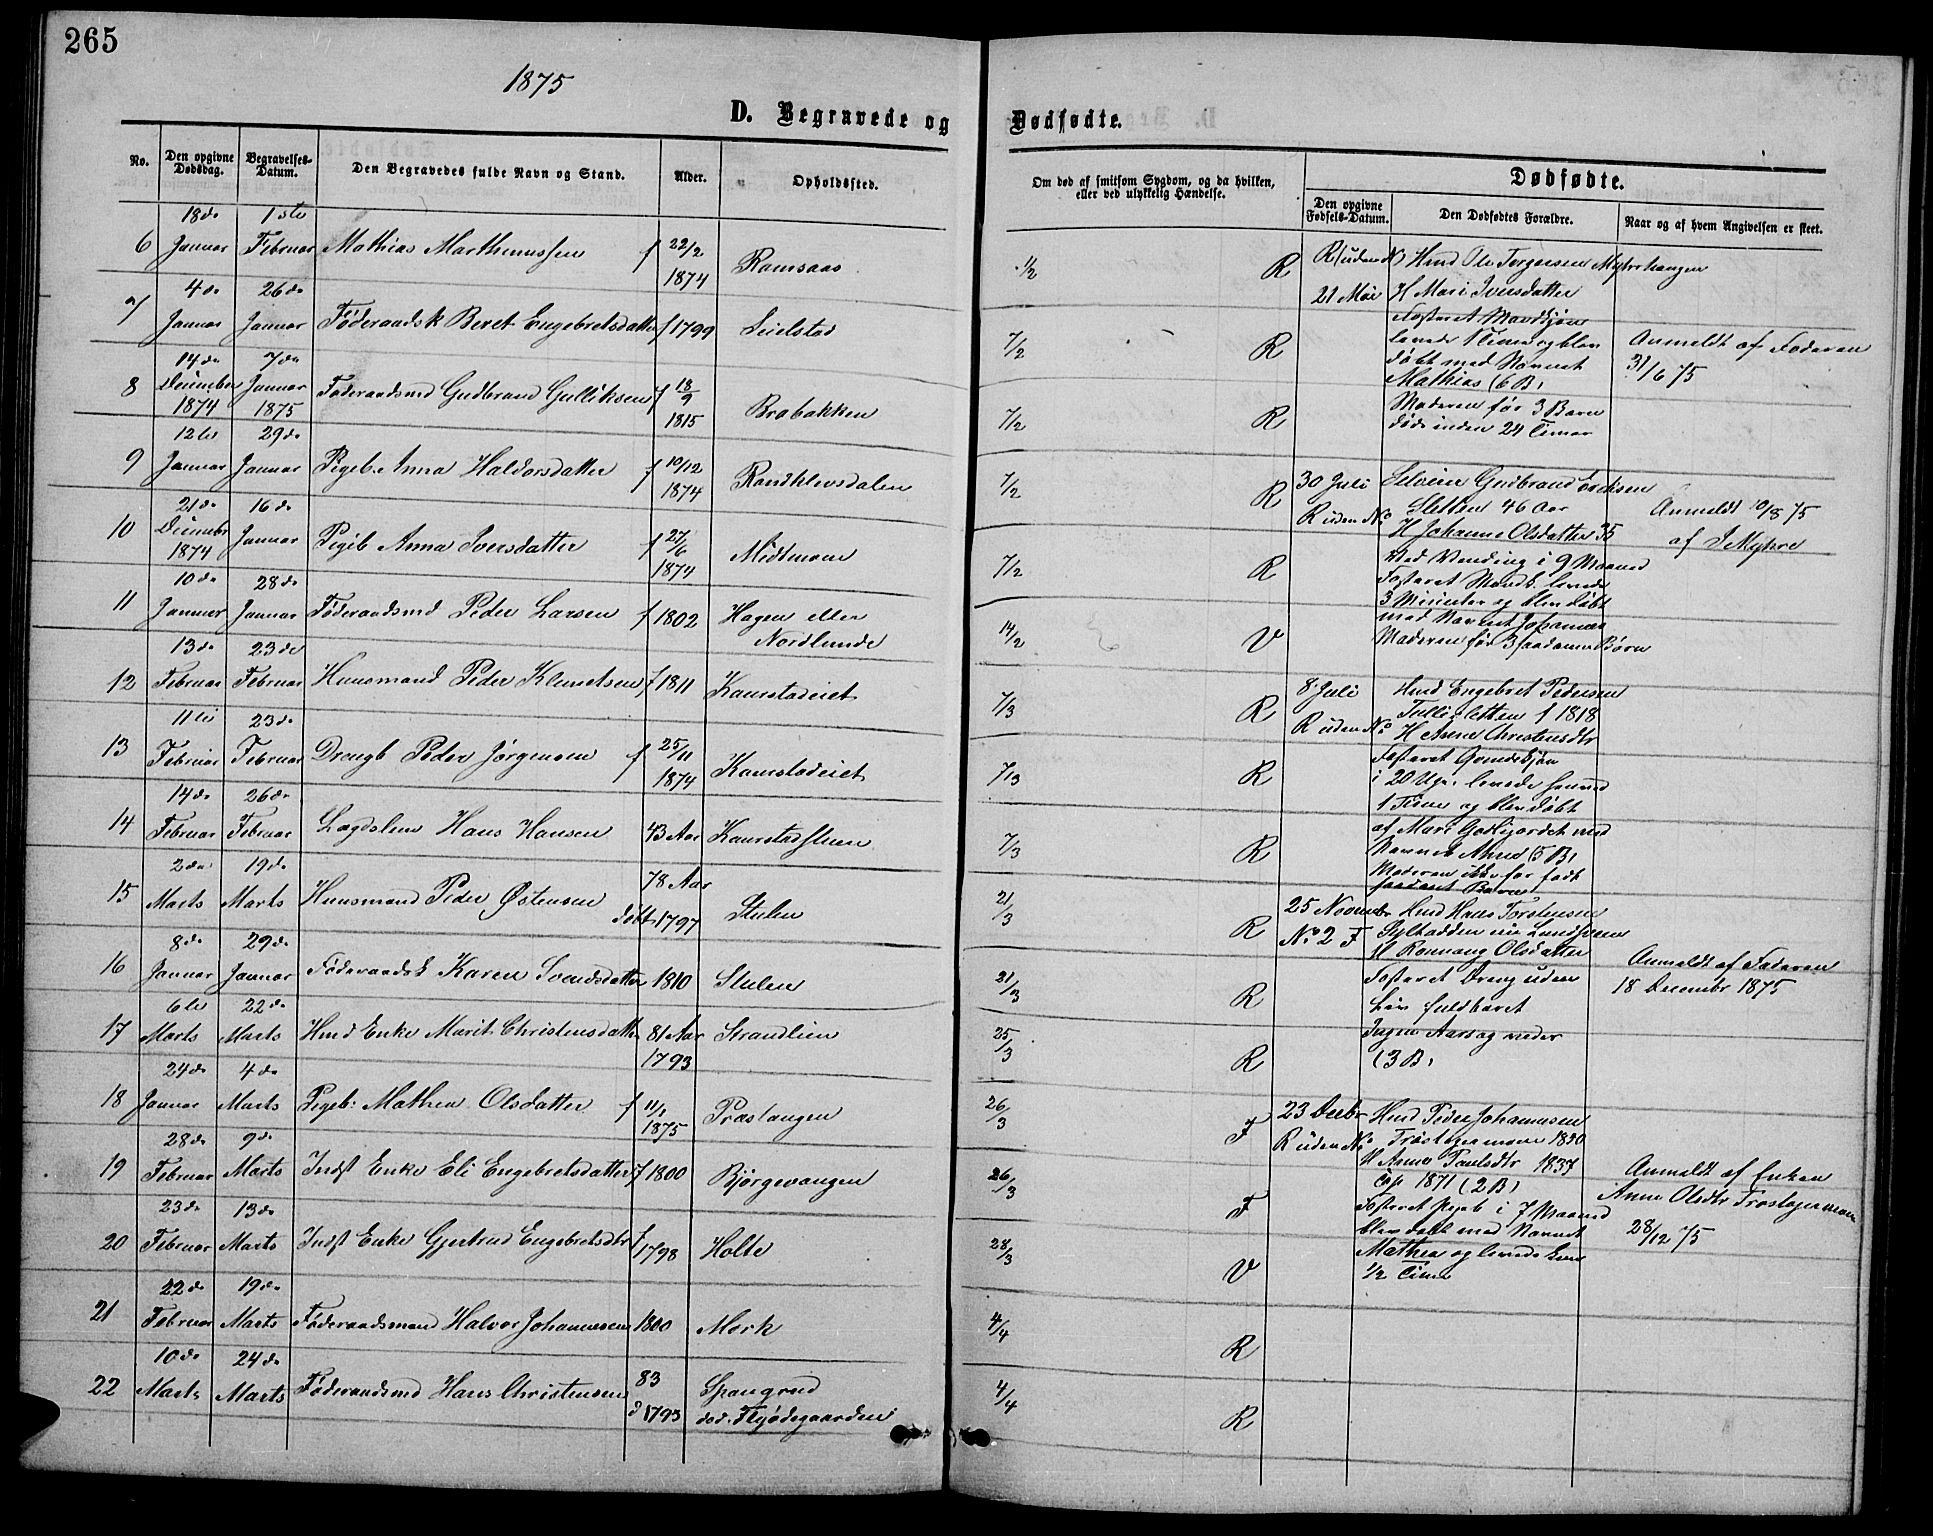 265
1875
D. Begravede og Dødfødte.
No.
Den opgivne Dødsdag.
Begravelses-Datum.
Den Begravedes fulde Navn og Stand.
Alder.
Opholdssted.
Om død af smitsom Sygdom, og da hvilken, eller ved ulykkelig Hændelse.
Dødfødte.
Den opgivne Fødsels-Datum.
Den Dødfødtes Forældre.
Naar og af hvem Angivelsen er skeet.
18de 1ste
6 Januar Februar Mathias Marthinussen f 22/2 1874 Ramsaas 1/2 R
4de 26de
7 Januar Januar Føderaadsk Beret Engebretsdatter f 1799 Leielstad 7/2 R
14de 7de
8 December 1874 Januar 1875 Føderaadsmd Gudbrand Gulliksen f 18/9 1815 Brobakken 7/2 R
12te 29de
9 Januar Januar Pigeb. Anna Haldorsdatter f 10/12 1874 Randklevsdalen 7/2 R
21de 16de
10 December 1874 Januar Pigeb Anna Iversdatter f 27/6 1874 Midtmoen 7/2 R
10de 28de
11 Januar Januar Føderaadsmd Peder Larsen f 1802 Hagen eller
Nordlunde 14/2 V
13de 23de
12 Februar Februar Huusmand Peder Klemetsen f 1811 Kamstadeiet 7/3 R
11te 23de
13 Februar Februar Drengb Peder Jørgensen f 25/11 1874 Kamstadeiet 7/3 R
14de 26de
14 Februar Februar Lægdslem Hans Hansen 43 Aar 7/3 R
2den 19de
15 Marts Marts Huusmand Peder Østensen 78 Aar
døbt 1797 Stulen 21/3 R
8de 29de
16 Januar Januar Føderaadsk Karen Svendsdatter 1810 Stulen 21/3 R
6te 22de
17 Marts Marts Hmd Enke Marit Christensdatter 81 Aar
1793 Strandlien 25/3 R
24de 4de
18 Januar Marts Pigeb: Mathea Olsdatter f 11/1 1875 Præstangen 26/3 F
28de 9de
19 Februar Marts Indst Enke Eli Engebretsdatter f 1800 Bjørgevangen 26/3 F
23de 13de
20 Februar Marts Indst Enke Gjertrud Engebretsdtr f 1798 Holte 28/3 V
22de 19de
21 Februar Marts Føderaadsmand Halvor Johannessen 1800 Mork 4/4 R
10de 24de
22 Marts Marts Føderaadsmd Hans Christensen 83
d 1793 Spangrud
død. Flyødegaarden 4/4 R
R (uden No) Hmd Ole Torgersen Myhrehaugen
21 Mai H Mari Iversdatter
Fosteret Mandkjøn
levede 1 Time og blev
døbt med Navnet
Mathias (6 B)
Moderen før 3 Børn
døde inden 24 Timer
Anmeldt af Faderen
31/6 75
30 Juli Selveier Gudbrand Ericksen
R uden No Sletten 46 Aar
H Johanne Olsdatter 35
Ved Vending i 9 Maaned
Fosteret Mandk. levede
3 Minuter og blev døbt
med Navnet Johannes
Moderen før 3 saadanne Børn
Anmeldt 10/8 75
af J Myhre
8 Juli Hmd Engebret Pedersen
R uden No f 1818
H Anne Christensdtr
Fosteret Qvindekjøn
i 20 Uge. levede henved
1 Time og blev døbt
af Mari med
Navnet (5 B)
Moderen ikke før født
saadant Barn
25 Novembr Hmd Hans Torstensen
No 2 F
H Ronnaug Olsdatter
Fosteret Dreng uden
Liv fuldbaaret
Ingen Aarsag
(3 B)
Anmeldt af Faderen
18 Decembr 1875
23 Decbr Hmd Peder Johannesen
R uden No Trøstagermoen 1830
H Anne Paulsdtr 1837
Cop 1871 (2 B)
Fosteret Pigeb i 7 Maaned
blev døbt med Navnet
Mathea og levede kun
1/2 Time
Anmeldt af Enken
Anne Olsdtr Trøstagermoen
28/12 75